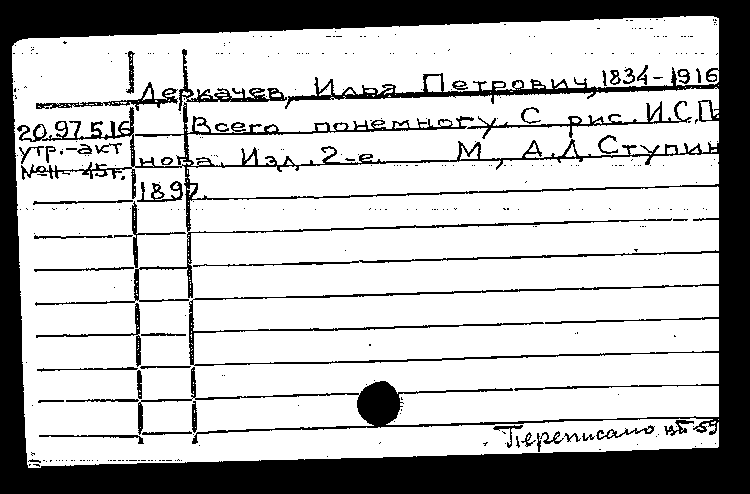 Деркачев, Илья Петрович, 1834-1916
20.97.5.16 Всего понемногу. С рис. И.С.П
утр.-акт нова. Изд. 2-е. М., А.Д. Ступин
№11-45г.
1897.
Переписано